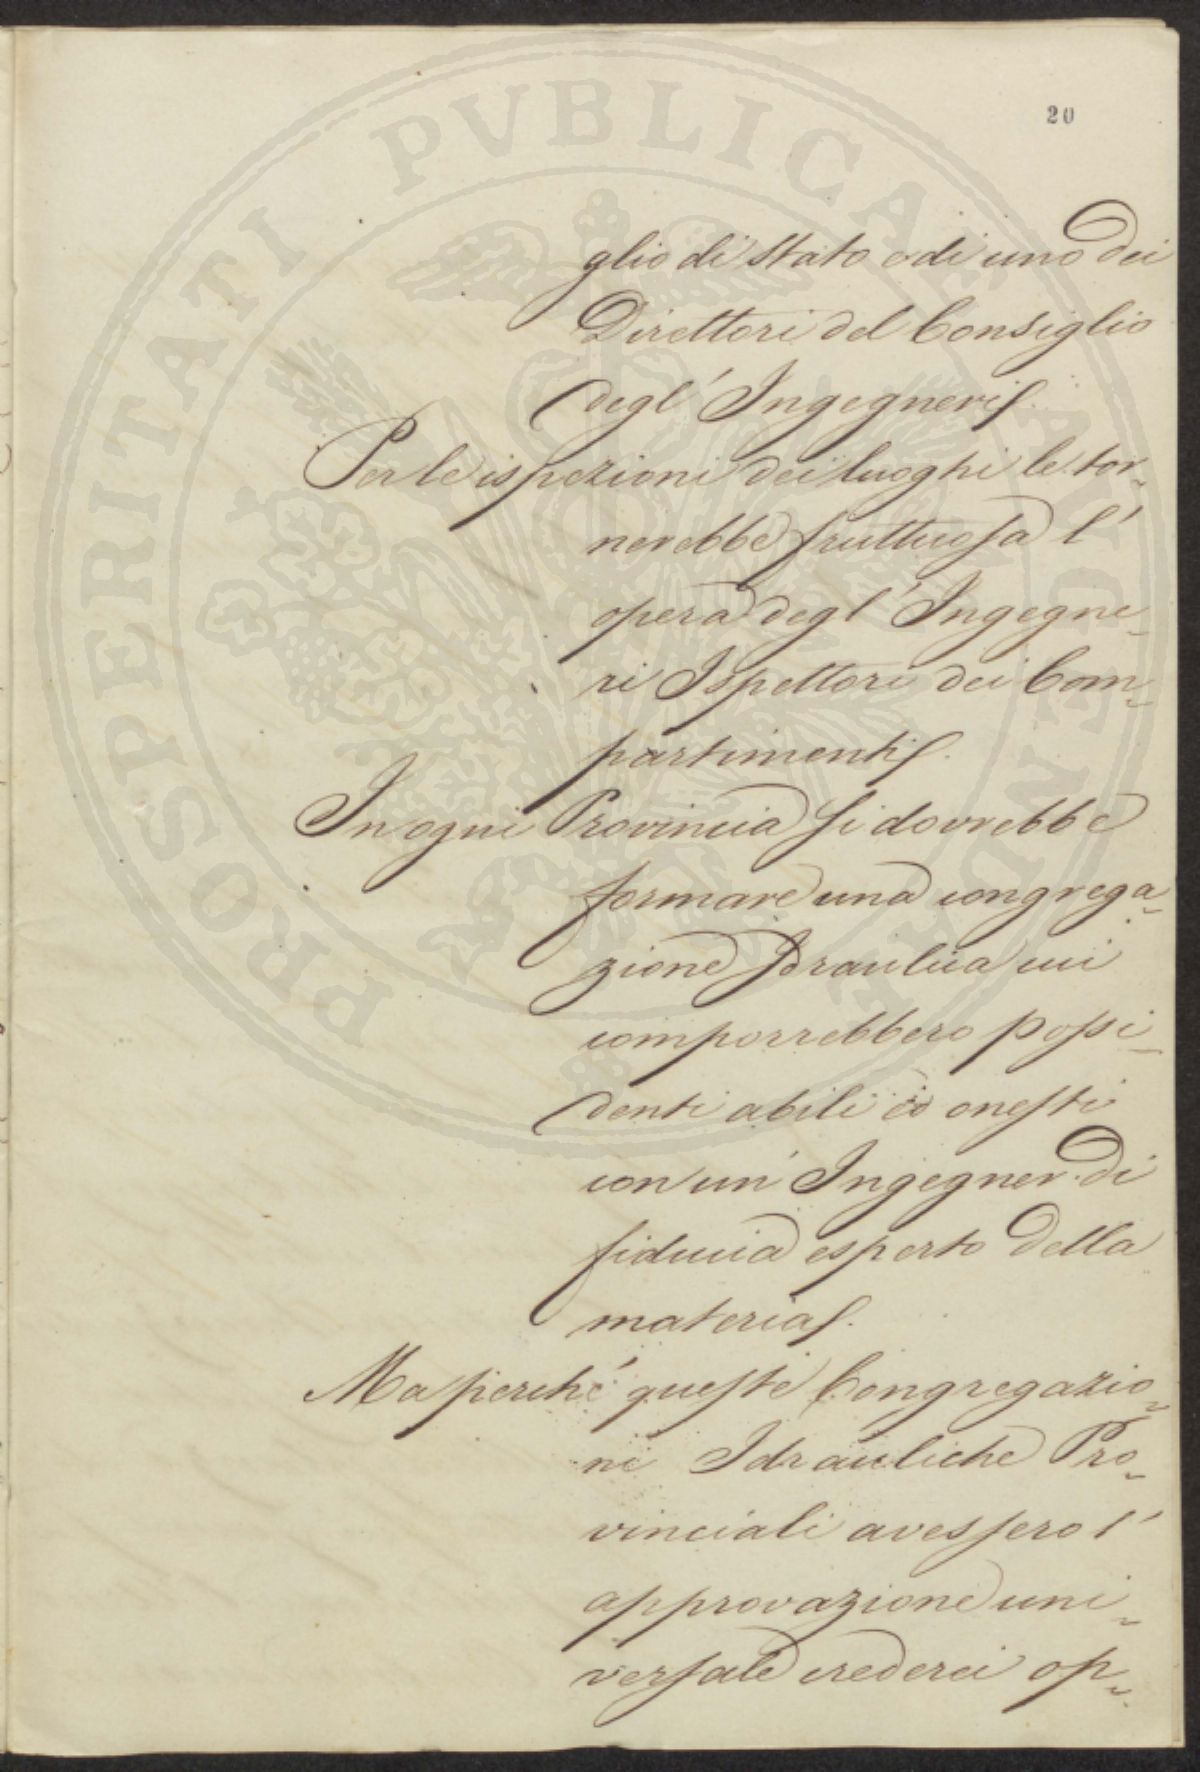 20
glio di Stato e di uno dei
Direttori del Consiglio
degl' Ingegneri.
Per le ispezioni dei luoghi le tor-
nerebbe fruttuosa l'
opera degl' Ingegne-
ri Ispettori dei Com-
partimenti.
In ogni Provincia si dovrebbe
formare una congrega-
zione Idraulica cui
comporrebbero possi-
denti abili ed onesti
con un' Ingegner di
fiducia esperto della
materia.
Ma perché queste Congregazio-
ni Idrauliche Pro-
vinciali avessero l'
approvazione uni-
versale crederei op-
PROSPERITATI PVBLICAE AVGENDAE